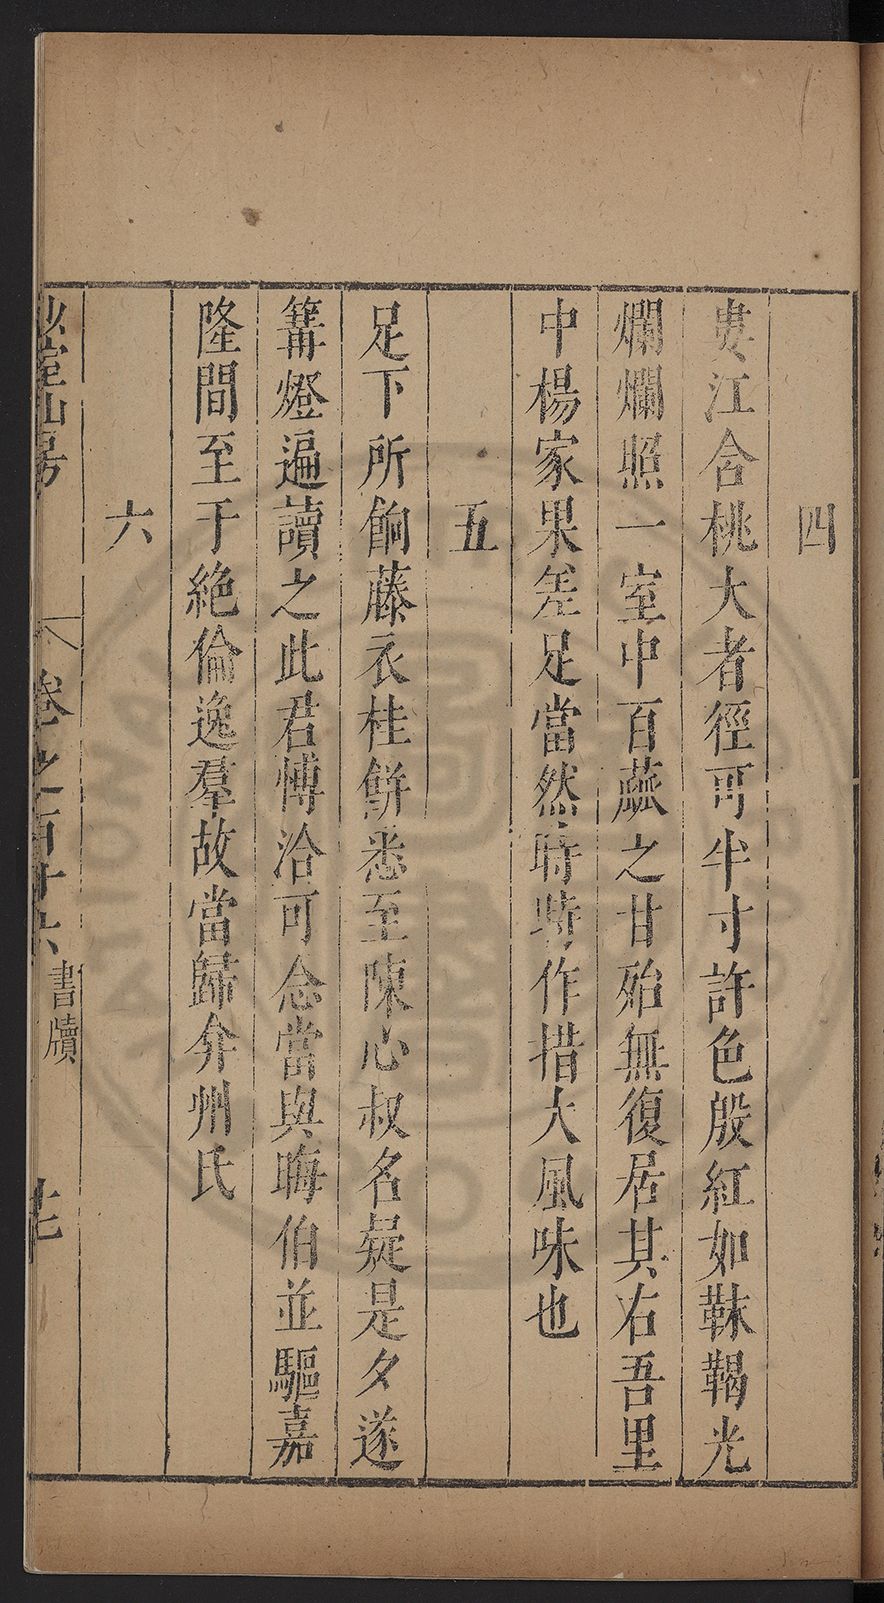 四
婁江合桃大者徑可半寸許色殷紅如靺鞨光
爛爛照一室中百蔬之甘殆無復居其右吾里
中楊家果差足當然時時作措大風味也
五
足下所餉藤衣桂餅悉至陳心叔名疑是夕遂
篝燈遍讀之此君愽洽可念當與晦伯並驅嘉
隆間至于絶倫逸羣故當歸弇州氏
六
少室山房
卷之百十六 書牘